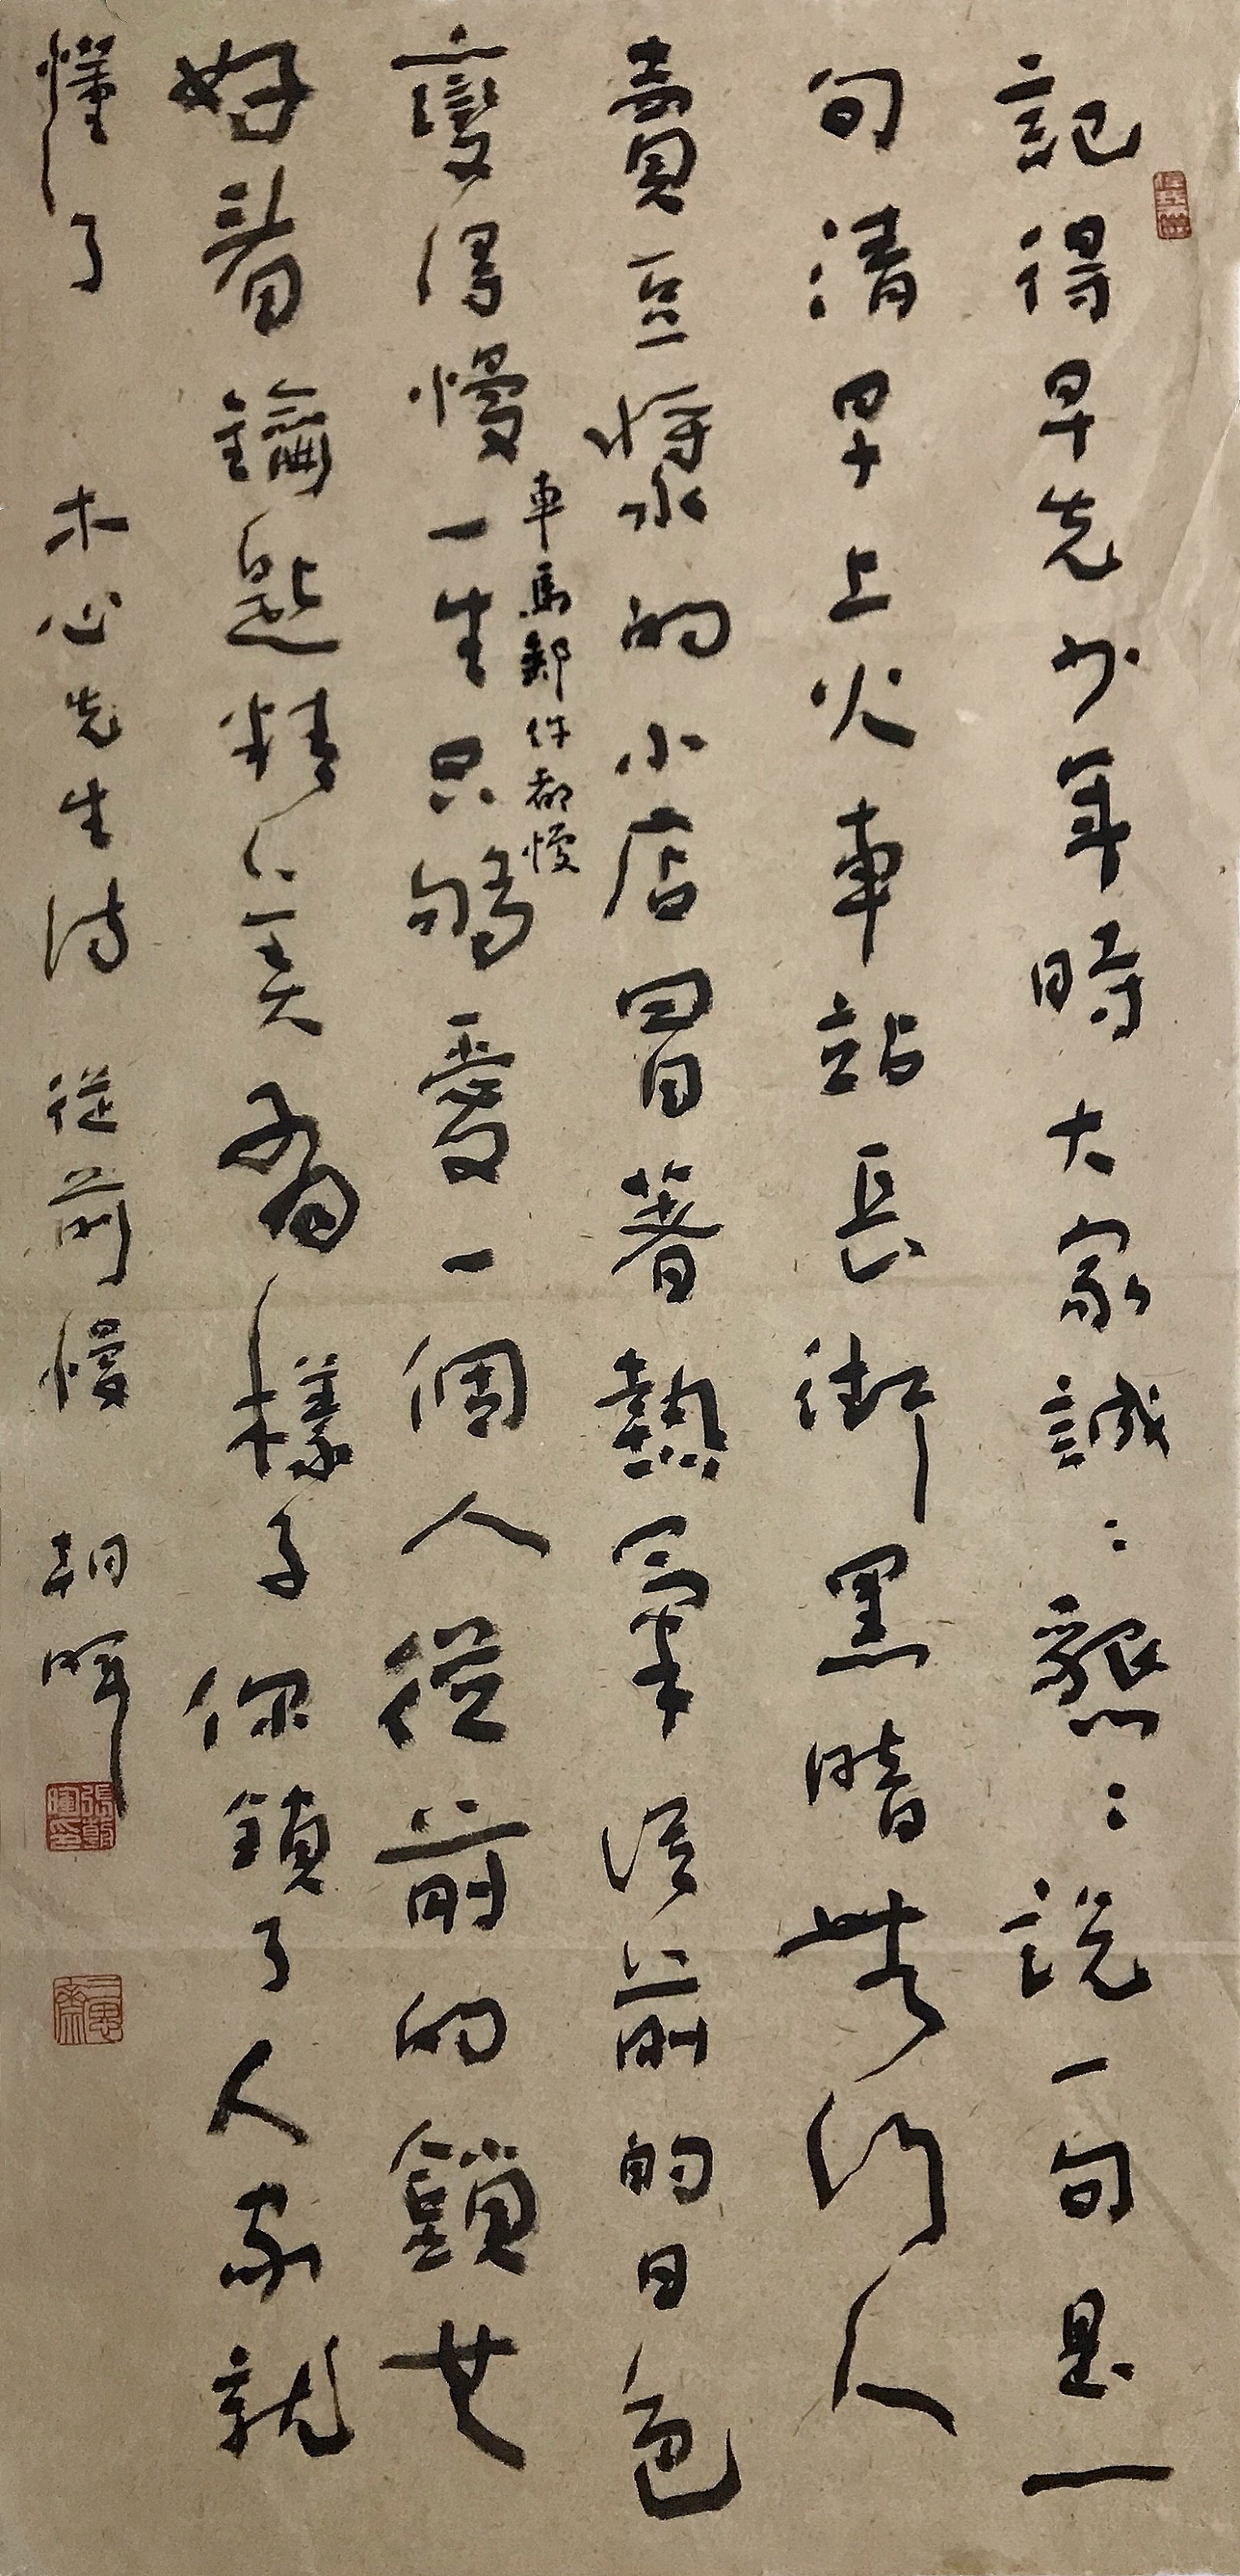 記得早先少年時大家誠：懇：說一句是一
句清早上火車站長街黑暗無行人
賣豆漿的小店冒著熱氣從前的日色
變得慢一生只夠愛一個人從前的鎖也
車馬郵件都慢
好看鑰匙精美有樣子你鎖了人家就
懂了 木心先生詩 從前慢 朝暉
張朝暉印